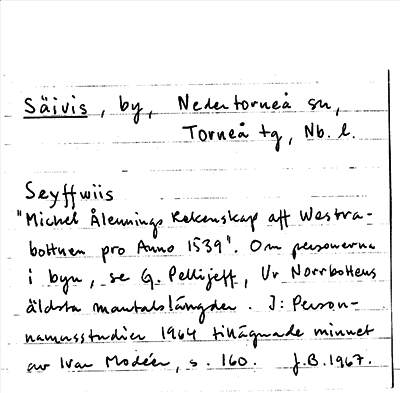 Säivis, by, Nedertorneå sn,
Torneå tg, Nb. l.
Seyffwiis
"Michel Ålennings Rekenskap aff Westra-
bottnen pro Anno 1539". Om personerna
i byn, se G. Pellijeff, Ur Norrbottens
äldsta mantalslängder. I: Person-
namnsstudier 1964 tillägnade minnet
av Ivar Modéer, s. 160. J.B. 1967.